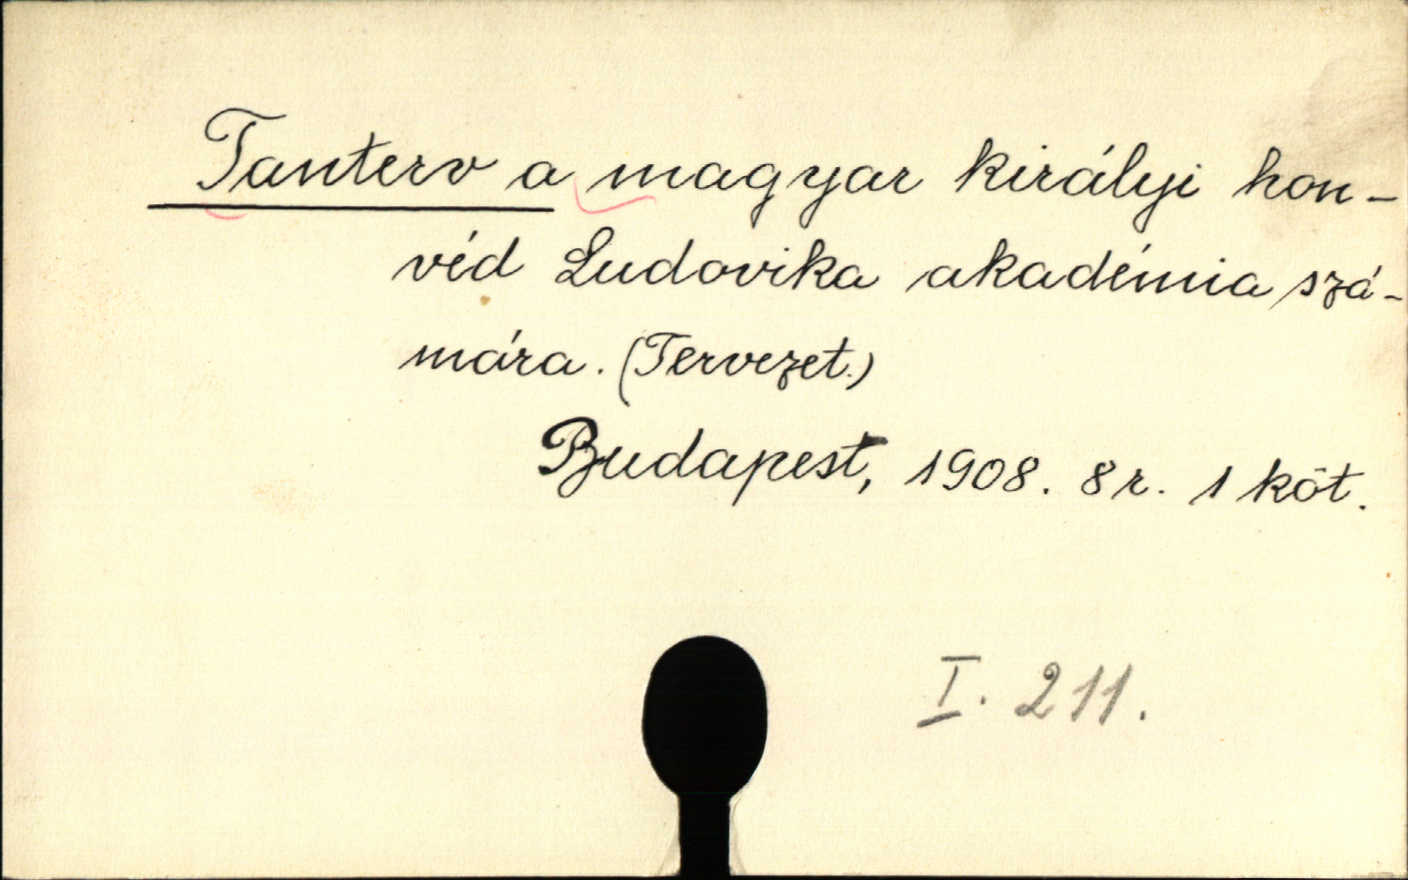 Tanterv a magyar királyi hon-
véd Ludovika akadémia szá-
mára. (Tervezet.)
Budapest, 1908. 8r. 1 köt.
I. 211.